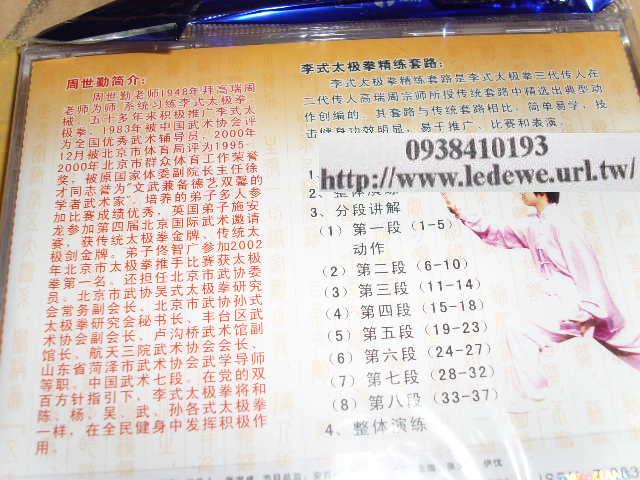 周世勤简介：
周世勤老师1948年拜高瑞周
老师为师,系统习练李式太极拳,
五十多年来积极推广李式太
极拳。1983年被中国武术协会评
为全国优秀武术辅导员,2000年
12月被北京市体育局评为1995-
2000年北京市群众体育工作荣誉
奖,被原国家体委副院长主任徐
才同志誉为“文武兼备德艺双馨的
学者武术家”。培养的弟子多人参
加比赛成绩优秀,英国弟子施安
龙参加第四届北京国际武术邀请
赛,获传统太极拳金牌、传统太
极剑金牌。弟子佟智广参加2002
年北京市太极拳推手比赛获太极
拳第一名。还担任北京市武协委
员、北京市武协吴式太极拳研究
会常务副会长、北京市武协孙式
太极拳研究会秘书长、丰台区武
术协会副会长、卢沟桥武术馆副
馆长、航天三院武术协会会长、
山东省菏泽市武术协会武学导师
等职。中国武术七段。在党的双
百方针指引下,李式太极拳将和
陈、杨、吴、武、孙各式太极拳
一样,在全民健身中发挥积极作
用。
李式太极拳精练套路：
李式太极拳精练套路是李式太极拳三代传人在
二代传人高瑞周宗师所授传统套路中精选出典型动
作创编的。其套路与传统套路相比,简单易学,技
击健身功效明显,易于推广、比赛和表演。
0938410193
http://www.ledewe.url.tw/
2、整体演练
3、分段讲解
(1) 第一段 (1-5)
动作
(2) 第二段 (6-10)
(3) 第三段 (11-14)
(4) 第四段 (15-18)
(5) 第五段 (19-23)
(6) 第六段 (24-27)
(7) 第七段 (28-32)
(8) 第八段 (33-37)
4、整体演练